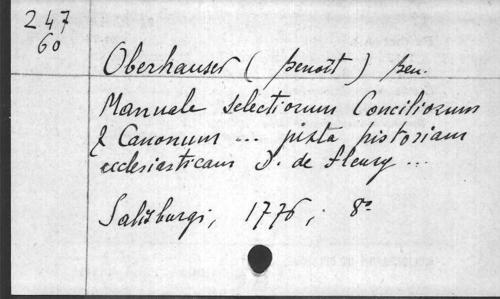 247
60
Oberhauser (Benoît) Ben.
Manuale selectiorum Conciliorum
& Canonum ... juxta historiam
ecclesiasticam D. de Fleury ...
Salisburgi, 1776; 8°